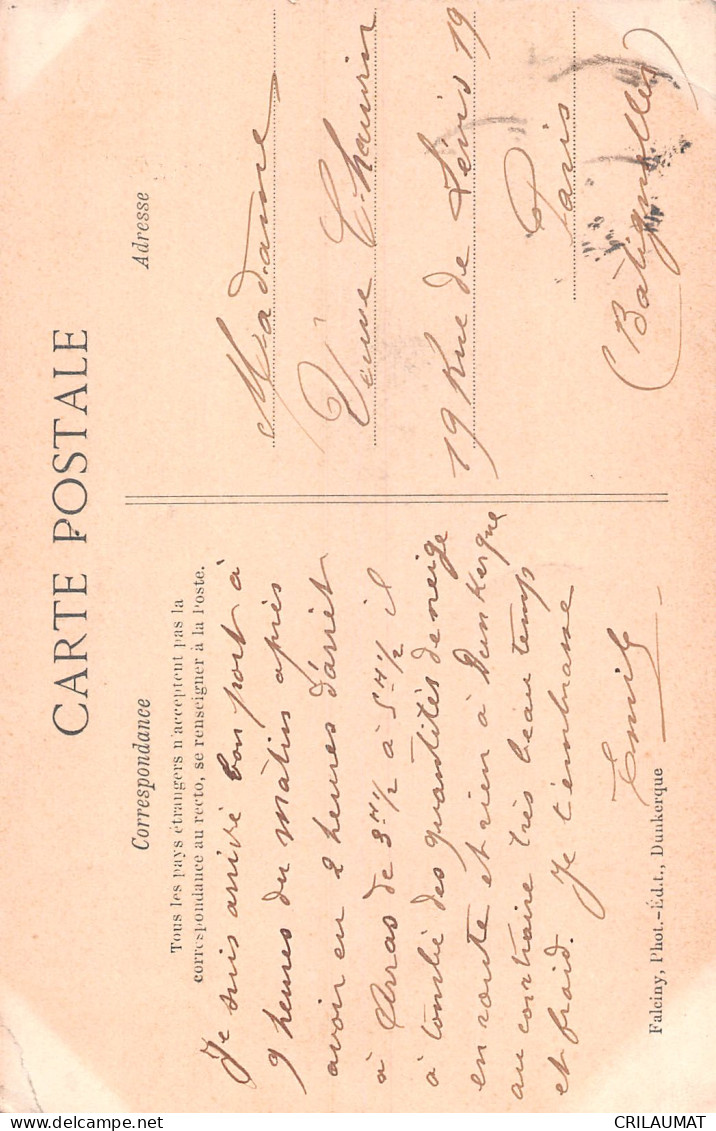 CARTE POSTALE
Correspondance
Tous les pays étrangers n'acceptent pas la
correspondance au recto, se renseigner à la Poste.
Je suis arrivé bon port à
9 heures du matin après
avoir eu 2 heures d'arrêt
à Arras de 3 H 1/2 à 5 H 1/2 il
à tombé des quantités de neige
en route et rien à Dunkerque
au contraire très beau temps
et froid. Je t'embrasse
Emile
Falciny, Phot.-Édit., Dunkerque
Adresse
Madame
Veuve Chauvin
19 Rue de Lévis 19
Paris
(Batignolles)
delcampe.net
CRILAUMAT